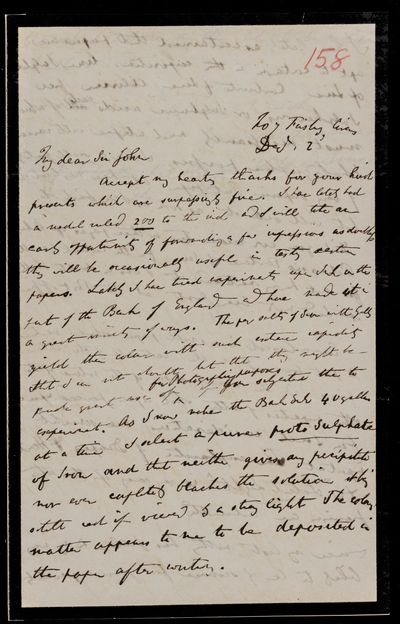 158
Dec. 2
My dear Sir John
Accept my hearty thanks for your kind
presents which are surpassingly fine. I have lately had
a medal ruled 200 to the inch and I will take an
early opportunity of forwarding a few impressions as doubtless
they will be occasionally useful in testing certain
papers. Lately I have tried experiments upon Ink on the
part of the Bank of England and have made it in
a great variety of ways. The per salts of Iron with Galls
yield their colour with such extreme rapidity
that I am not clear but that they might be
for Photographic purposes
made great use of if you subjected them to
experiment. As I now make the Bank Ink 40 gallons
at a time I select a pure proto Sulphate
of Iron and that neither gives any precipitate
nor even capable blackens the solution it being
still red if viewed by a strong light. The colouring
matter appears to me to be deposited in
the paper after writing.